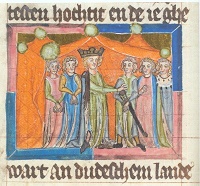 reden hochtit en de ie ghe
wart an dudeschem lande